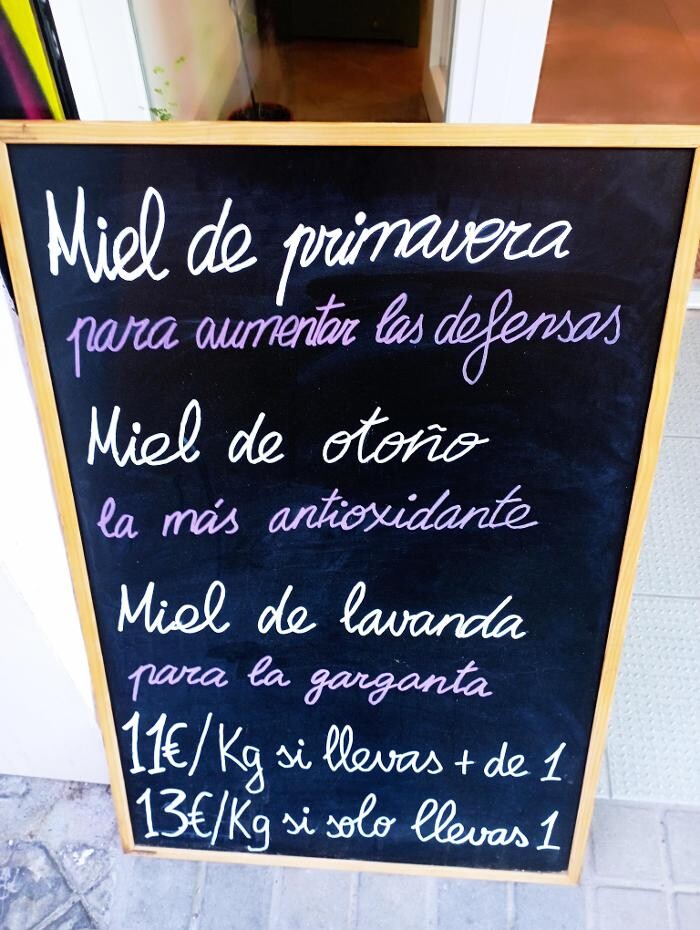 Miel de primavera
para aumentar las defensas
Miel de otoño
la más antioxidante
Miel de lavanda
para la garganta
11€/Kg si llevas + de 1
13€/Kg si solo llevas 1